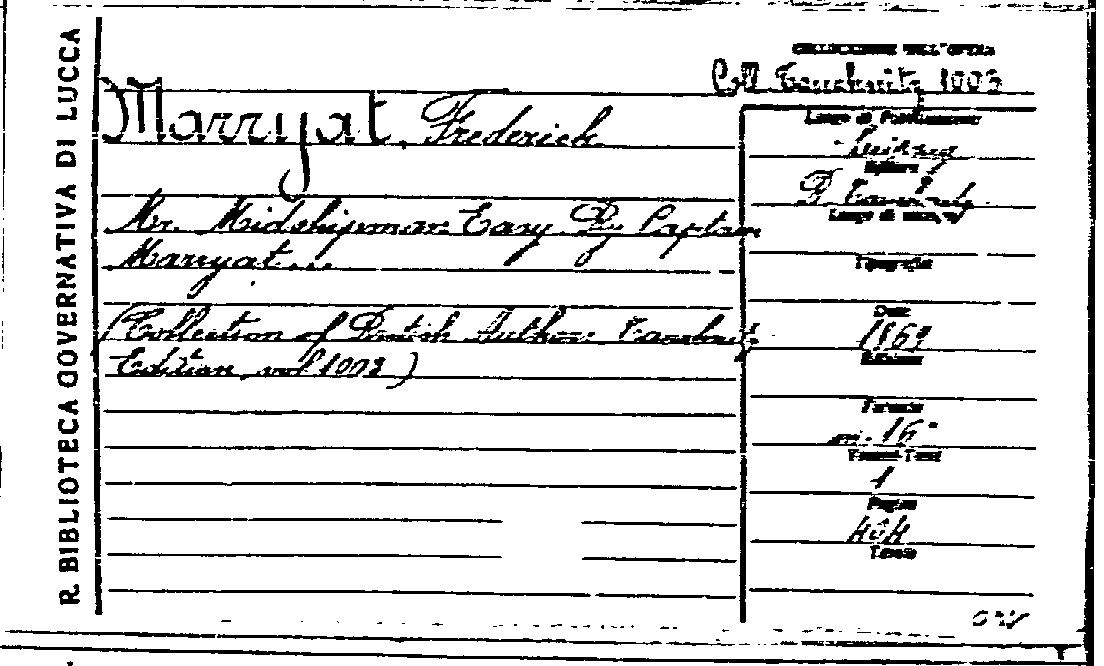 R. BIBLIOTECA GOVERNATIVA DI LUCCA
COLLOCAZIONE DELL'OPERA
Coll. Tauchnitz 1003
Marryat, Frederick
Mr. Midshipman Easy By Captain
Marryat...
(Collection of British Authors Tauchnitz
Edition, vol 1003)
Luogo di Pubblicazione
Leipzig
Editore
B. Tauchnitz
Luogo di stampa
Tipografia
Data
1869
Edizione
Formato
in-16°
Volumi-Tomi
1
Pagine
404
Tavole